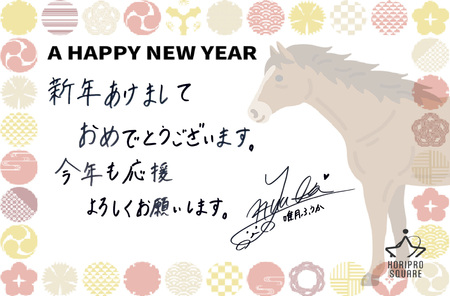 A HAPPY NEW YEAR
新年あけまして
おめでとうございます。
今年も応援
よろしくお願いします。
唯月ふうか
HORIPRO
SQUARE